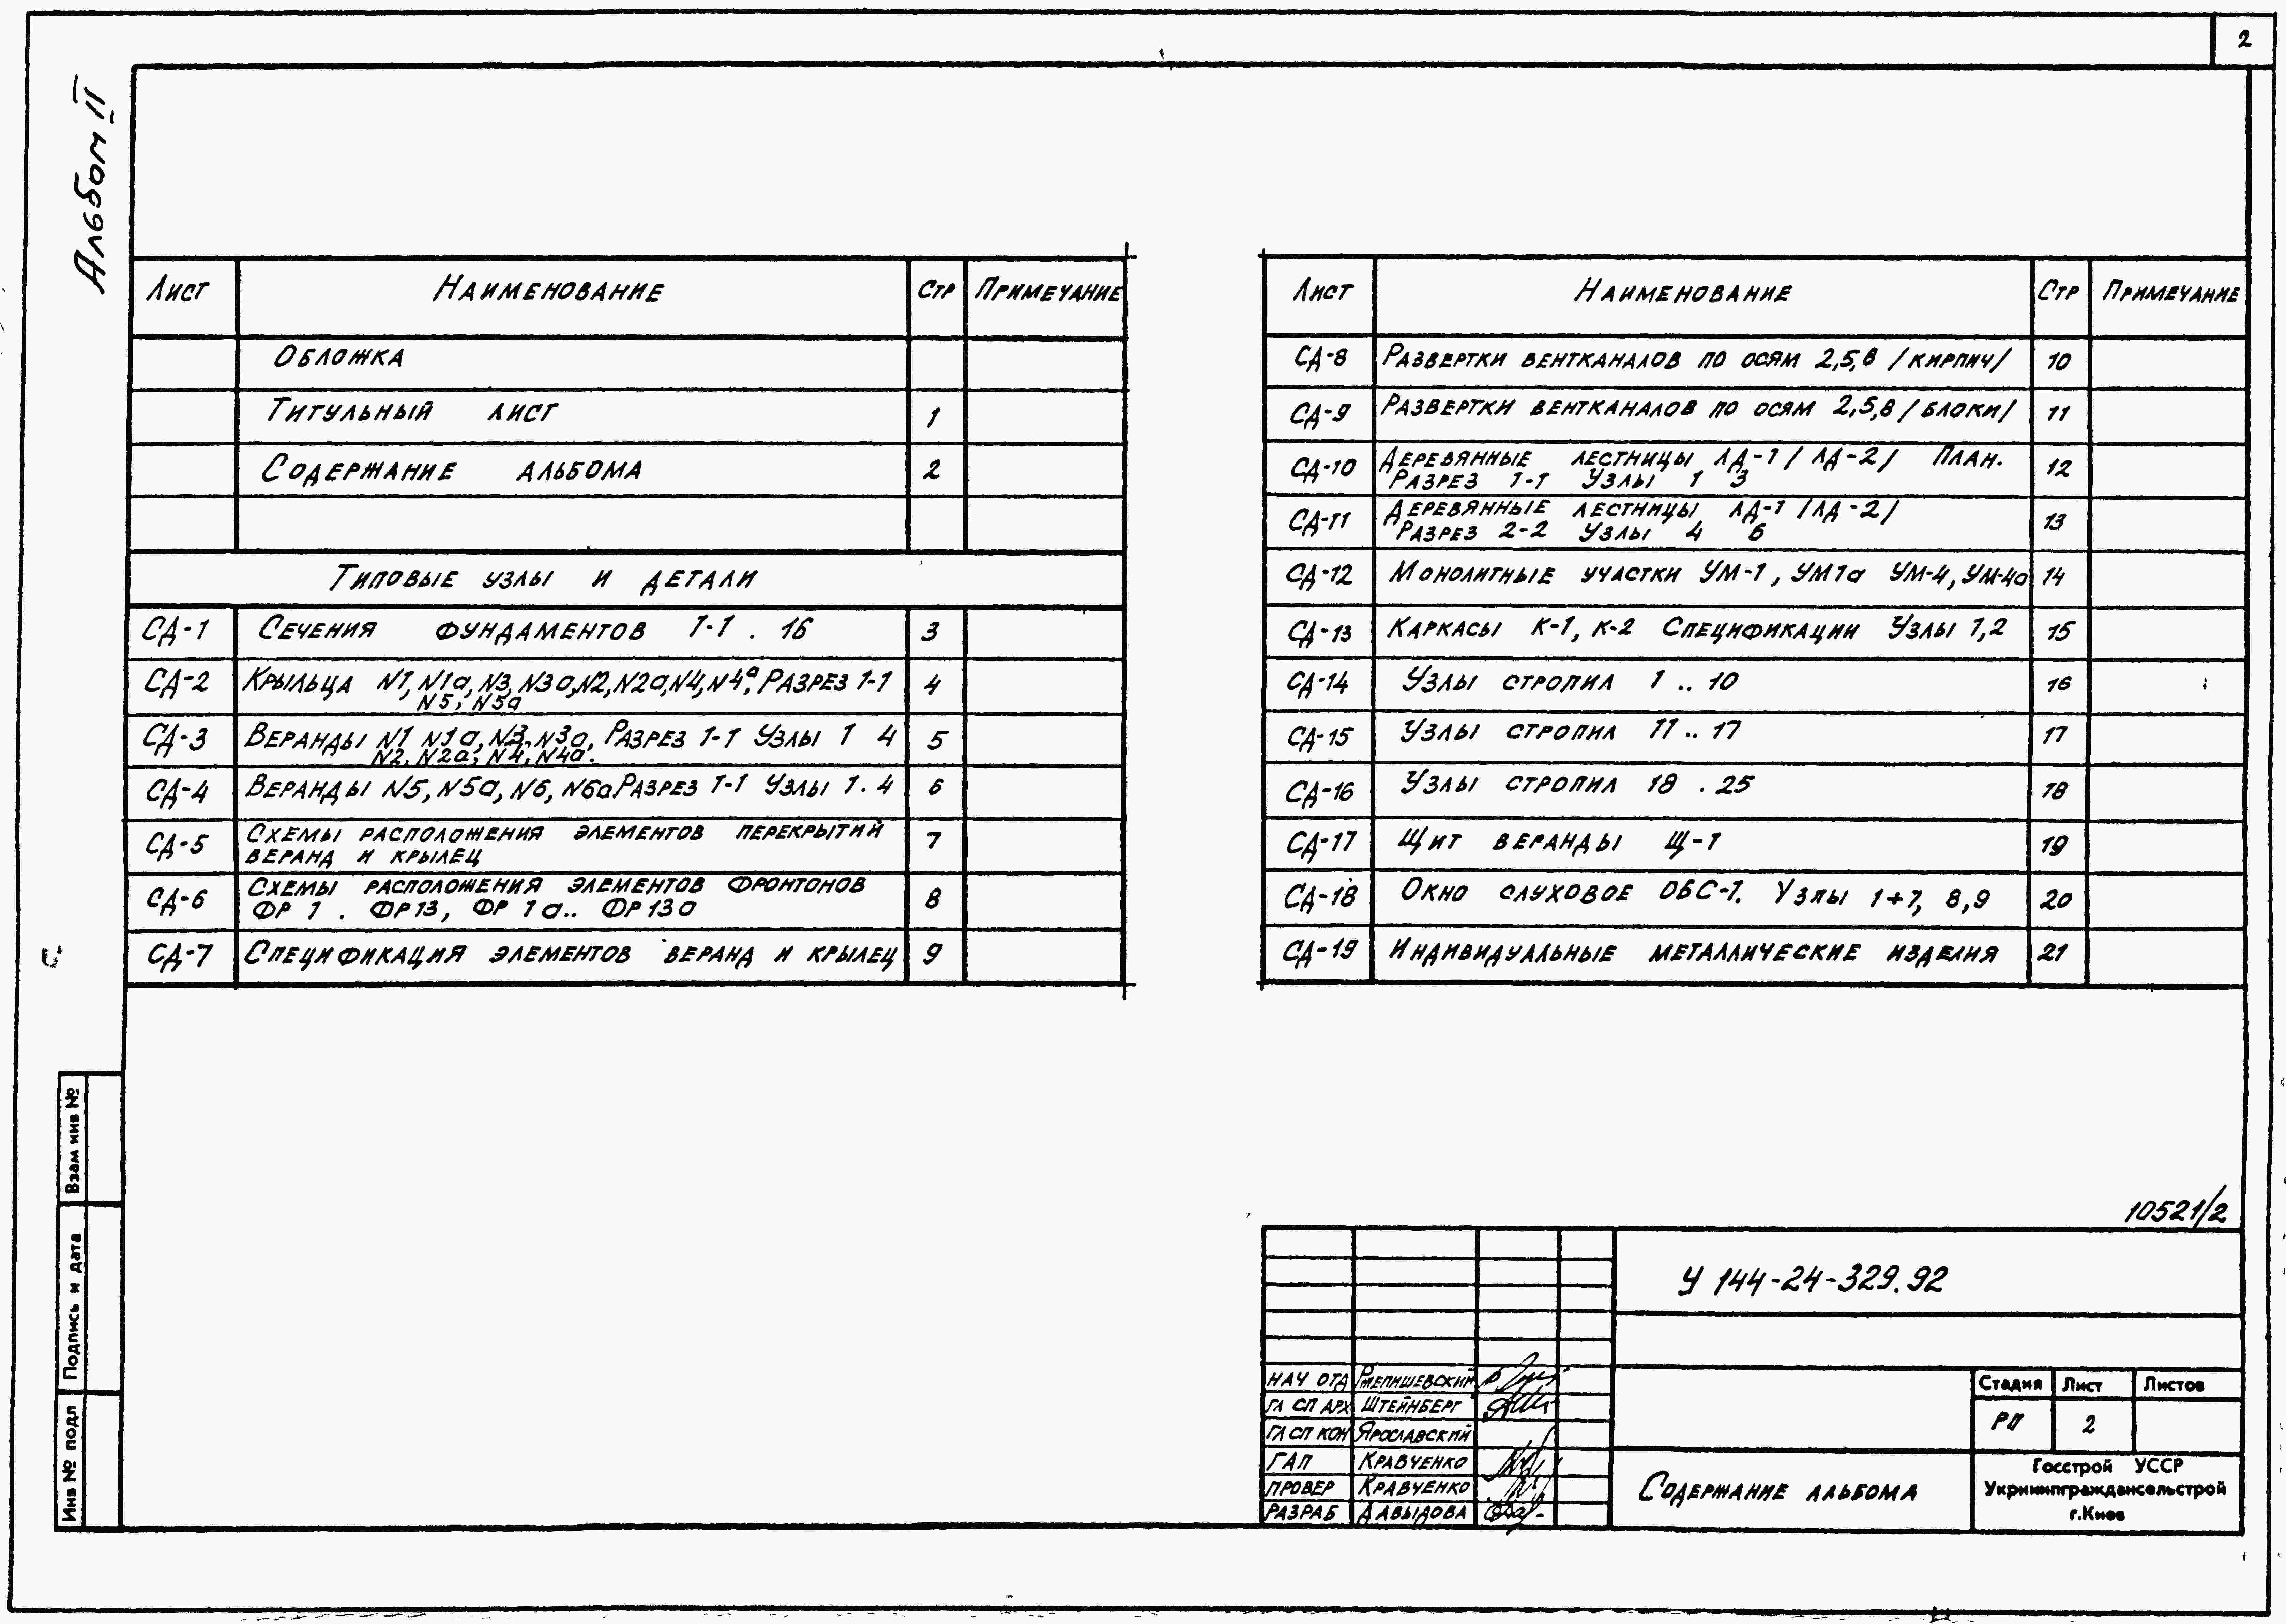 2
Альбом II
Лист Наименование Стр Примечание
Обложка
Титульный лист 1
Содержание альбома 2
Типовые узлы и детали
СД-1 Сечения фундаментов 1-1 . 16 3
СД-2 Крыльца N1, N1а, N3, N3а, N2, N2а, N4, N4а, Разрез 1-1 4
N5, N5а
СД-3 Веранды N1 N1а, N3, N3а, Разрез 1-1 Узлы 1 4 5
N2, N2а, N4, N4а.
СД-4 Веранды N5, N5а, N6, N6а Разрез 1-1 Узлы 1. 4 6
СД-5 Схемы расположения элементов перекрытий 7
веранд и крылец
СД-6 Схемы расположения элементов фронтонов 8
ФР 1 . ФР13, ФР 1а.. ФР13а
СД-7 Спецификация элементов веранд и крылец 9
Лист Наименование Стр Примечание
СД-8 Развертки вентканалов по осям 2,5,8 /кирпич/ 10
СД-9 Развертки вентканалов по осям 2,5,8 /блоки/ 11
СД-10 Деревянные лестницы ЛД-1 / ЛД-2/ План. 12
Разрез 1-1 Узлы 1 3
СД-11 Деревянные лестницы ЛД-1 /ЛД-2/ 13
Разрез 2-2 Узлы 4 6
СД-12 Монолитные участки УМ-1, УМ1а УМ-4, УМ-4а 14
СД-13 Каркасы К-1, К-2 Спецификации Узлы 1,2 15
СД-14 Узлы стропил 1 .. 10 16
СД-15 Узлы стропил 11 .. 17 17
СД-16 Узлы стропил 18 . 25 18
СД-17 Щит веранды Щ-1 19
СД-18 Окно слуховое ОБС-1. Узлы 1÷7, 8,9 20
СД-19 Индивидуальные металлические изделия 21
Взам инв №
Подпись и дата
Инв № подл
10521/2
У 144-24-329.92
НАЧ ОТД
ГЛ СП АРХ Штейнберг
ГЛ СП КОН Ярославский
ГАП Кравченко
ПРОВЕР Кравченко
РАЗРАБ Давыдова
Стадия Лист Листов
РП 2
Содержание альбома
Госстрой УССР
Укрниипграждансельстрой
г.Киев